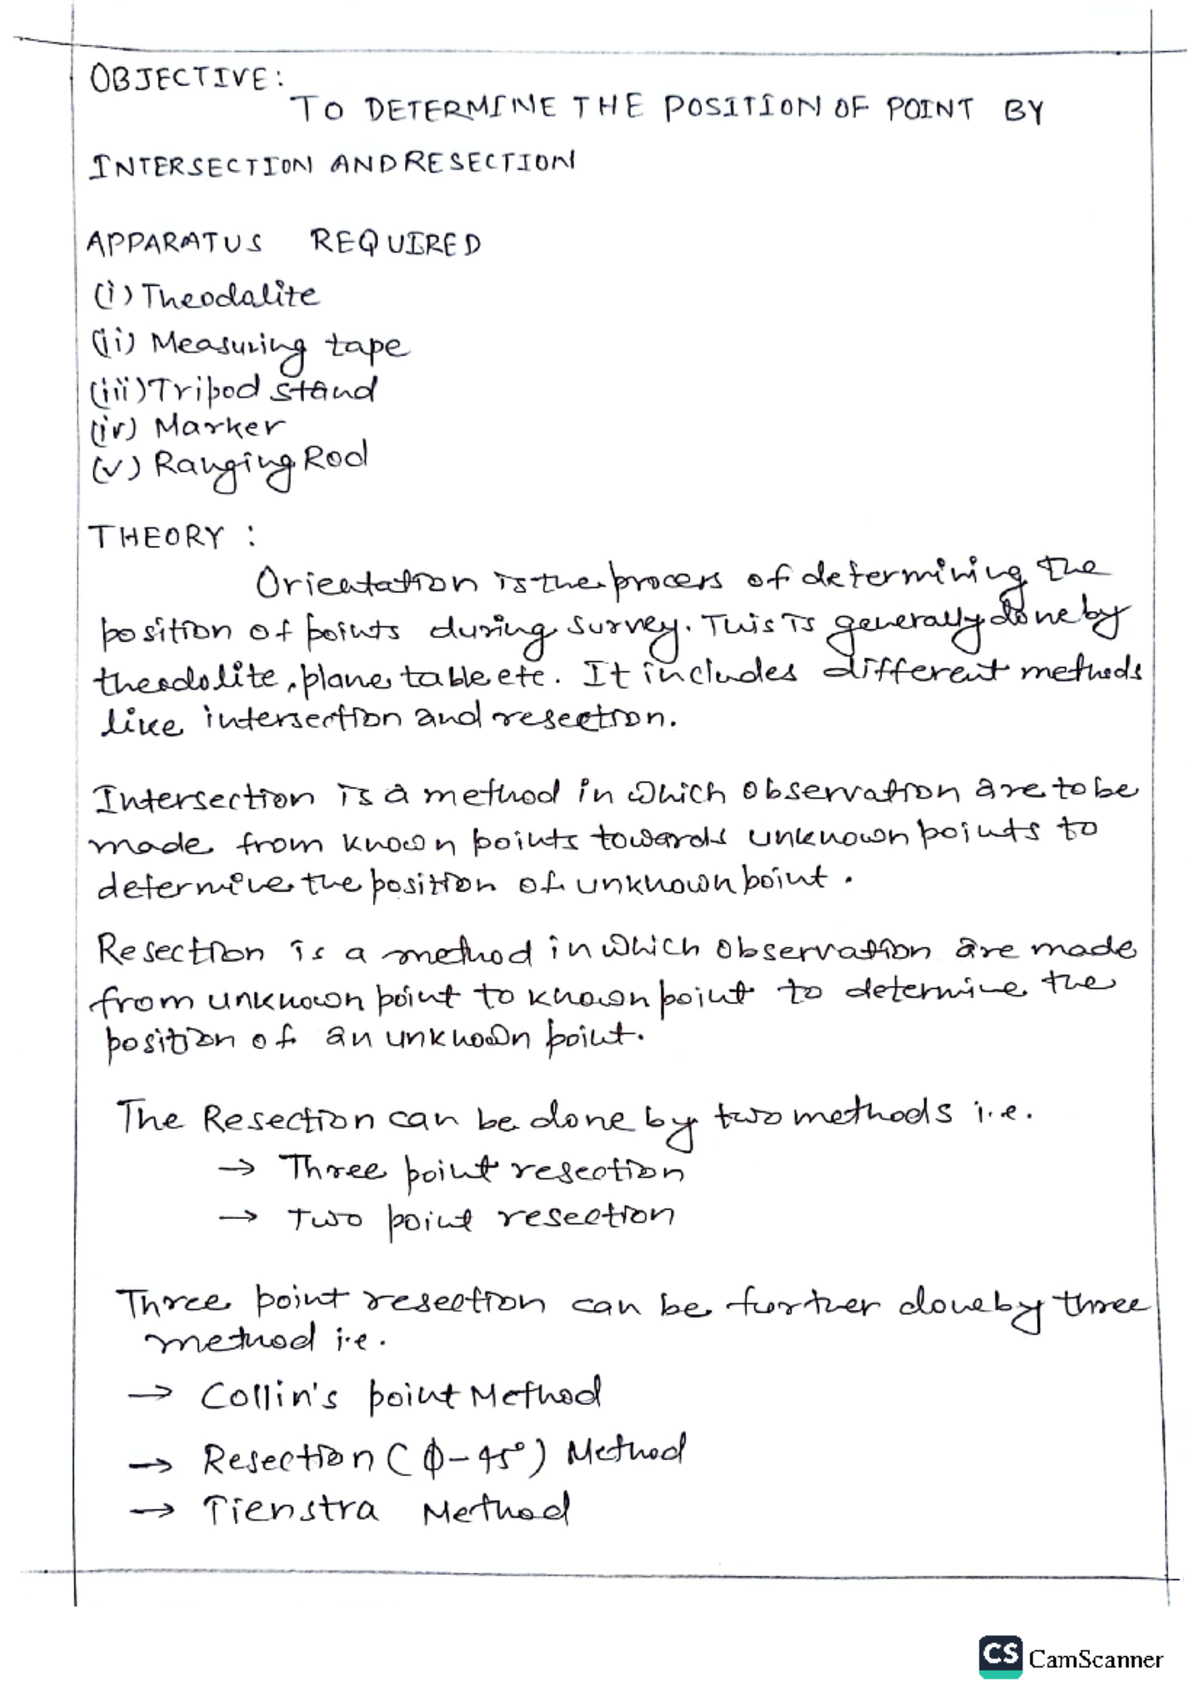 OBJECTIVE:
TO DETERMINE THE POSITION OF POINT BY
INTERSECTION AND RESECTION
APPARATUS REQUIRED
(i) Theodalite
(ii) Measuring tape
(iii) Tripod stand
(iv) Marker
(v) Ranging Rod
THEORY :
Orientation is the process of determining the
position of points during survey. This is generally done by
theodolite, plane table etc. It includes different methods
like intersection and resection.
Intersection is a method in which observation are to be
made from known points towards unknown points to
determine the position of unknown point.
Resection is a method in which observation are made
from unknown point to known point to determine the
position of an unknown point.
The Resection can be done by two methods i.e.
→ Three point resection
→ Two point resection
Three point resection can be further done by three
method i.e.
→ Collin's point Method
→ Resection (ϕ-45°) Method
→ Tienstra Method
CS CamScanner